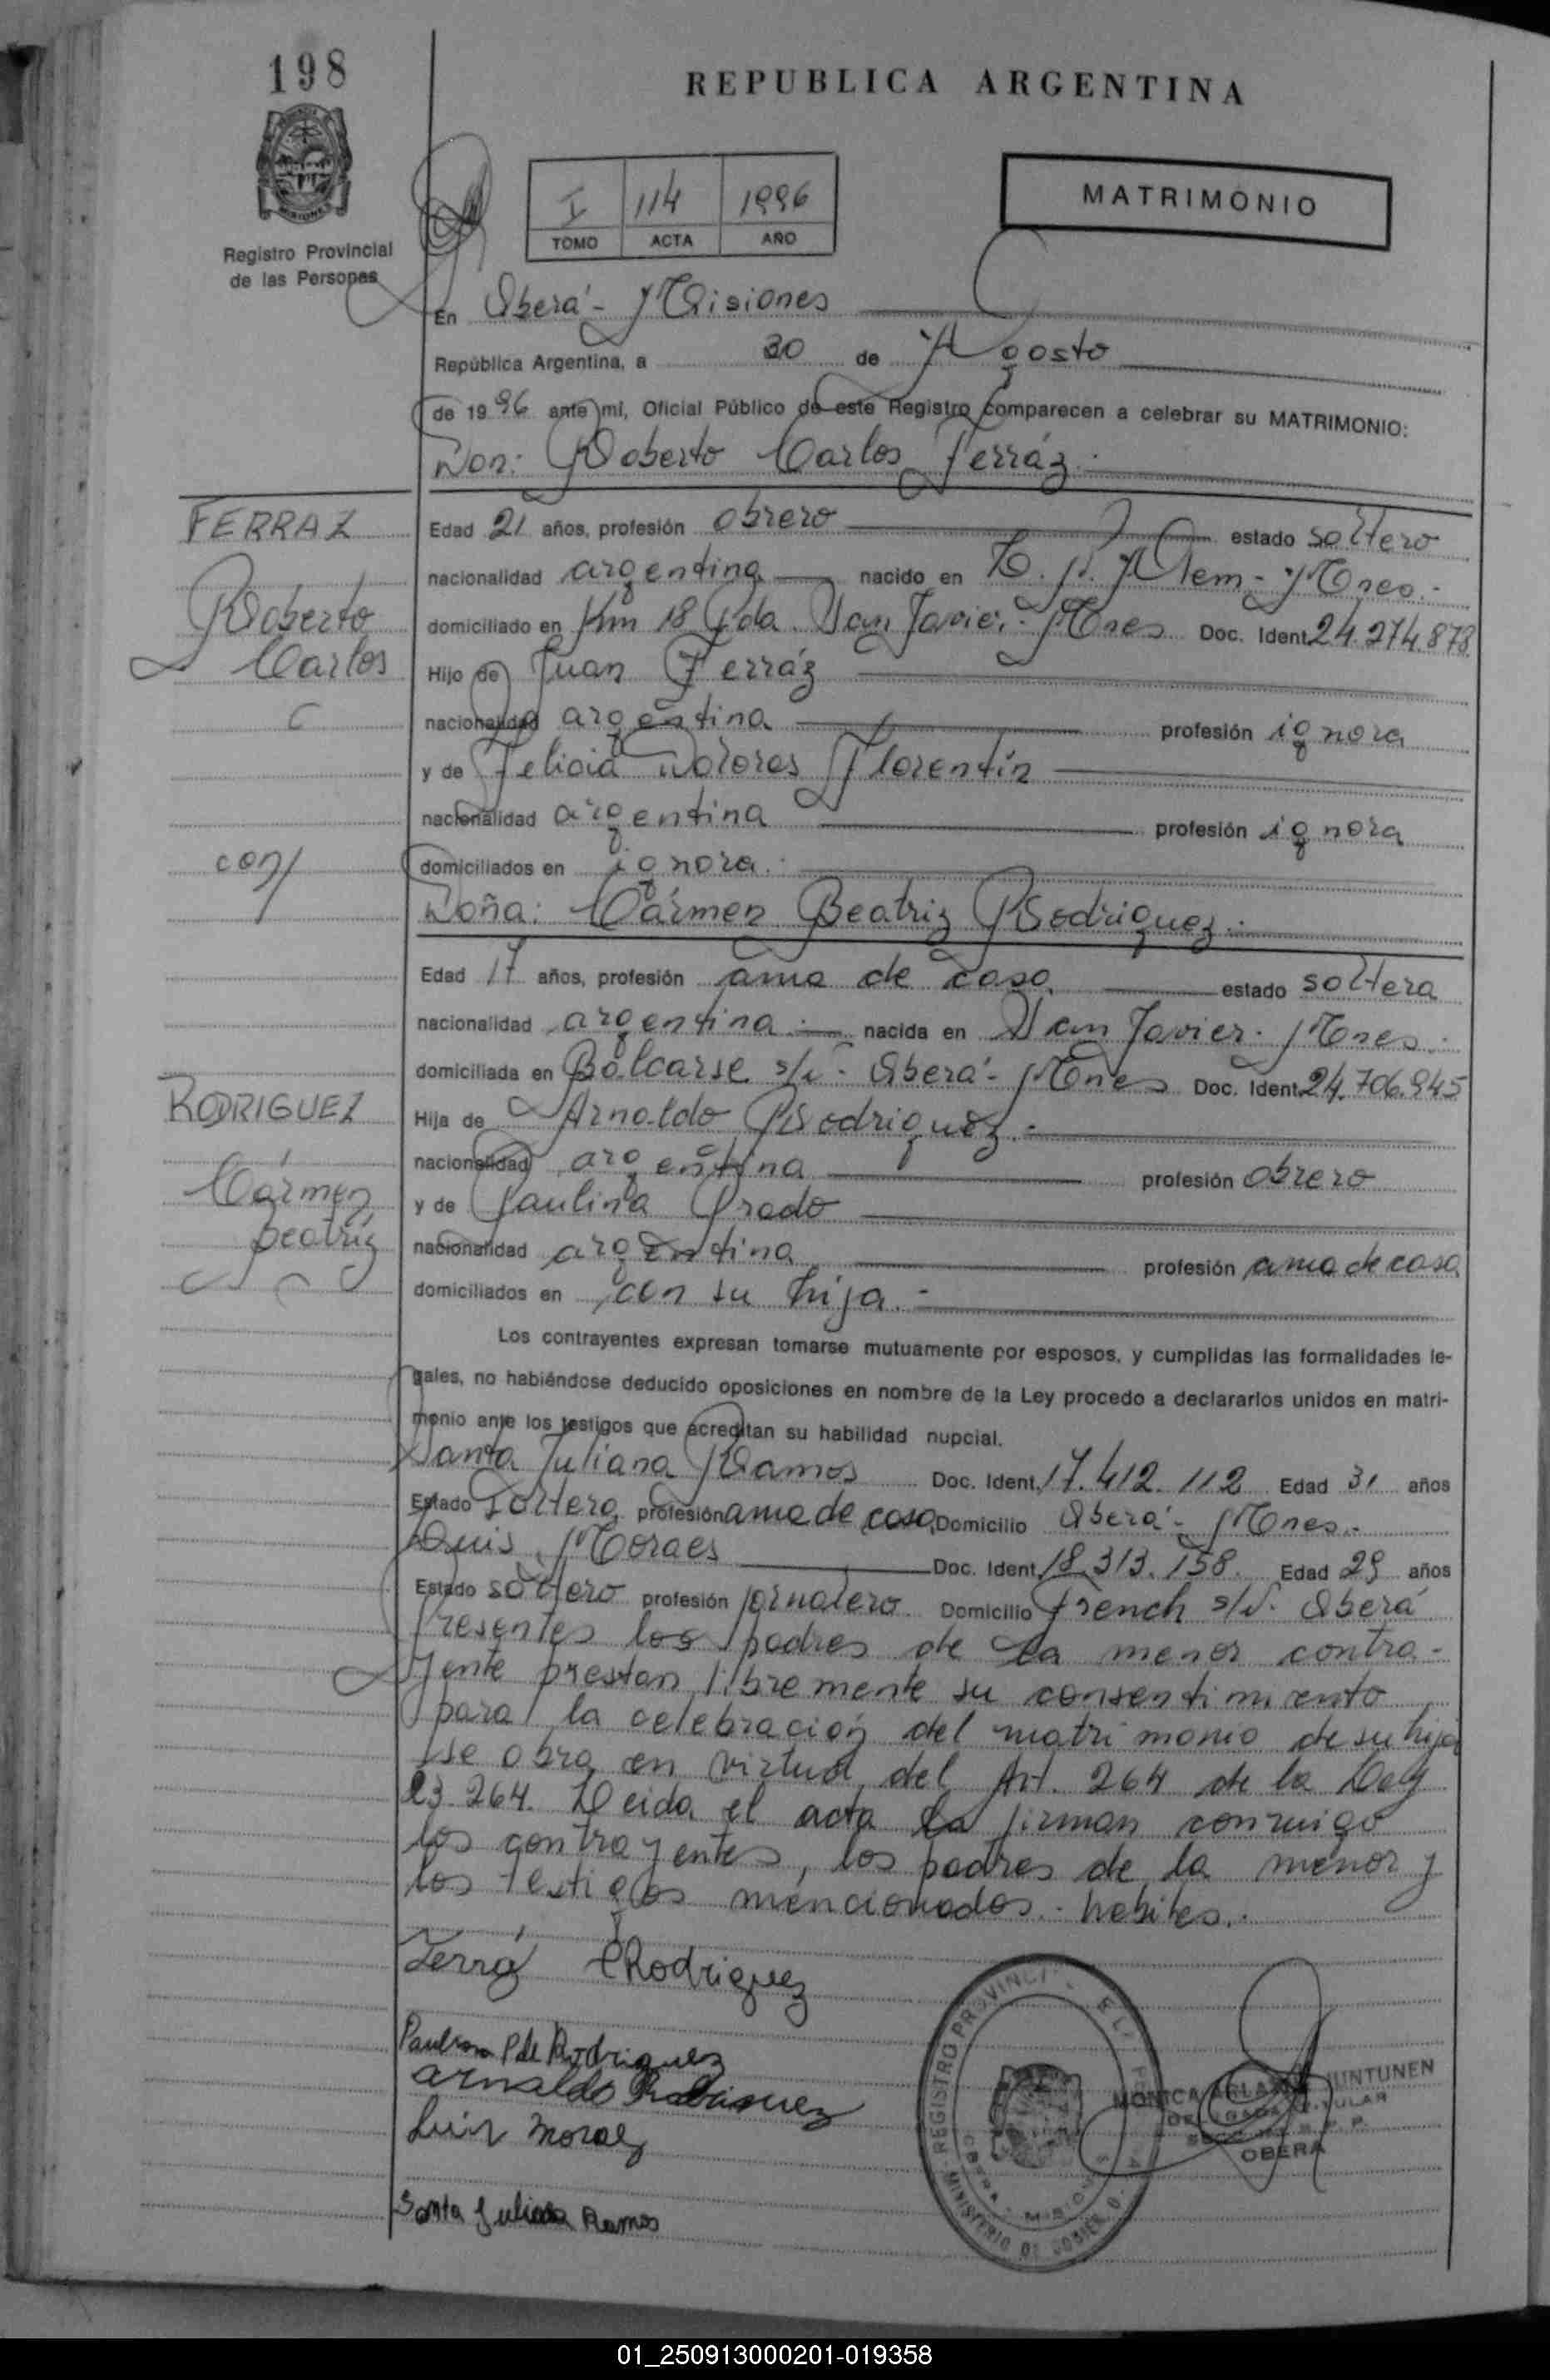 198
REPUBLICA ARGENTINA
MATRIMONIO
I 114 1996
TOMO ACTA AÑO
Registro Provincial
de las Personas
En Oberá - Misiones
República Argentina, a 30 de Agosto
de 1996 ante mi, Oficial Público de este Registro comparecen a celebrar su MATRIMONIO:
Don: Roberto Carlos Ferráz.-
FERRAZ
Roberto
Carlos
Edad 21 años, profesión obrero estado soltero
nacionalidad argentina nacido en L. N. Alem - Mnes.-
domiciliado en Km 18 Pda. San Javier - Mnes Doc. Ident. 24.274.878
Hijo de Juan Ferráz
nacionalidad argentina profesión ignora
y de Felicia Dolores Florentín
nacionalidad argentina profesión ignora
domiciliados en ignora.-
con/
Doña: Cármen Beatriz Rodriguez.-
RODRIGUEZ
Cármen
Beatriz
Edad 17 años, profesión ama de casa estado soltera
nacionalidad argentina.- nacida en San Javier - Mnes.-
domiciliada en Balcarse s/n - Oberá - Mnes Doc. Ident. 24.706.945
Hija de Arnoldo Rodriguez.-
nacionalidad argentina profesión obrero
y de Paulina Prado
nacionalidad argentina profesión ama de casa
domiciliados en con su hija.-
Los contrayentes expresan tomarse mutuamente por esposos, y cumplidas las formalidades le-
gales, no habiéndose deducido oposiciones en nombre de la Ley procedo a declararlos unidos en matri-
monio ante los testigos que acreditan su habilidad nupcial.
Santa Juliana Ramos Doc. Ident. 17.412.112 Edad 31 años
Estado soltera profesión ama de casa Domicilio Oberá - Mnes.-
Luis Moraes Doc. Ident. 18.313.158. Edad 29 años
Estado soltero profesión jornalero Domicilio French s/n. Oberá
Presentes los padres de la menor contra-
yente prestan libremente su consentimiento
para la celebración del matrimonio de su hija
se obra en virtud del Art. 264 de la Ley
23.264. Leida el acta la firman conmigo
los contrayentes, los padres de la menor y
los testigos mencionados.- habiles.-
Ferrá CRodriguez
Paulina P de Rodriguez
Arnaldo Rodriguez
Luis Moraes
Santa Juliana Ramos
REGISTRO PROVINCIAL DE LAS PERSONAS
OBERA - MISIONES
MINISTERIO DE GOBIERNO
MONICA
DELEGADA TITULAR
OBERA
01_250913000201-019358